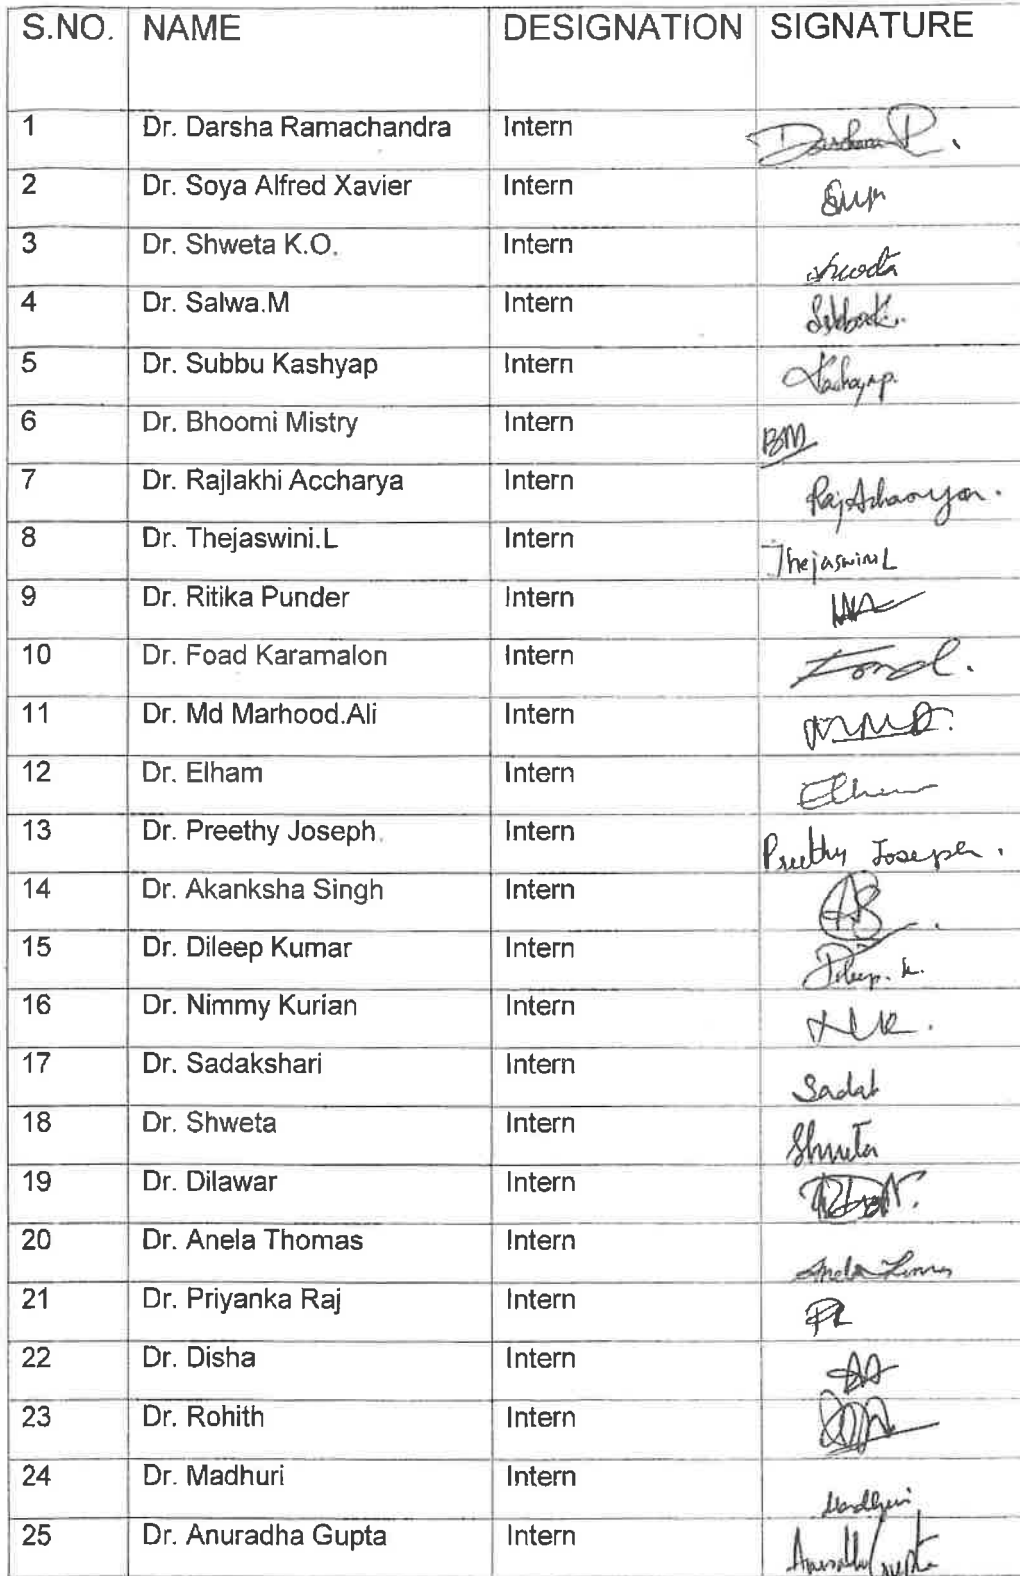 S.NO. NAME DESIGNATION SIGNATURE
1 Dr. Darsha Ramachandra Intern
2 Dr. Soya Alfred Xavier Intern
3 Dr. Shweta K.O. Intern
4 Dr. Salwa.M Intern
5 Dr. Subbu Kashyap Intern Kashyap.
6 Dr. Bhoomi Mistry Intern BM
7 Dr. Rajlakhi Accharya Intern
8 Dr. Thejaswini.L Intern Thejaswini L
9 Dr. Ritika Punder Intern
10 Dr. Foad Karamalon Intern
11 Dr. Md Marhood.Ali Intern
12 Dr. Elham Intern
13 Dr. Preethy Joseph. Intern Preethy Joseph.
14 Dr. Akanksha Singh Intern
15 Dr. Dileep Kumar Intern Dileep. K.
16 Dr. Nimmy Kurian Intern
17 Dr. Sadakshari Intern
18 Dr. Shweta Intern Shweta
19 Dr. Dilawar Intern
20 Dr. Anela Thomas Intern
21 Dr. Priyanka Raj Intern
22 Dr. Disha Intern
23 Dr. Rohith Intern
24 Dr. Madhuri Intern Madhuri
25 Dr. Anuradha Gupta Intern Anuradha Gupta